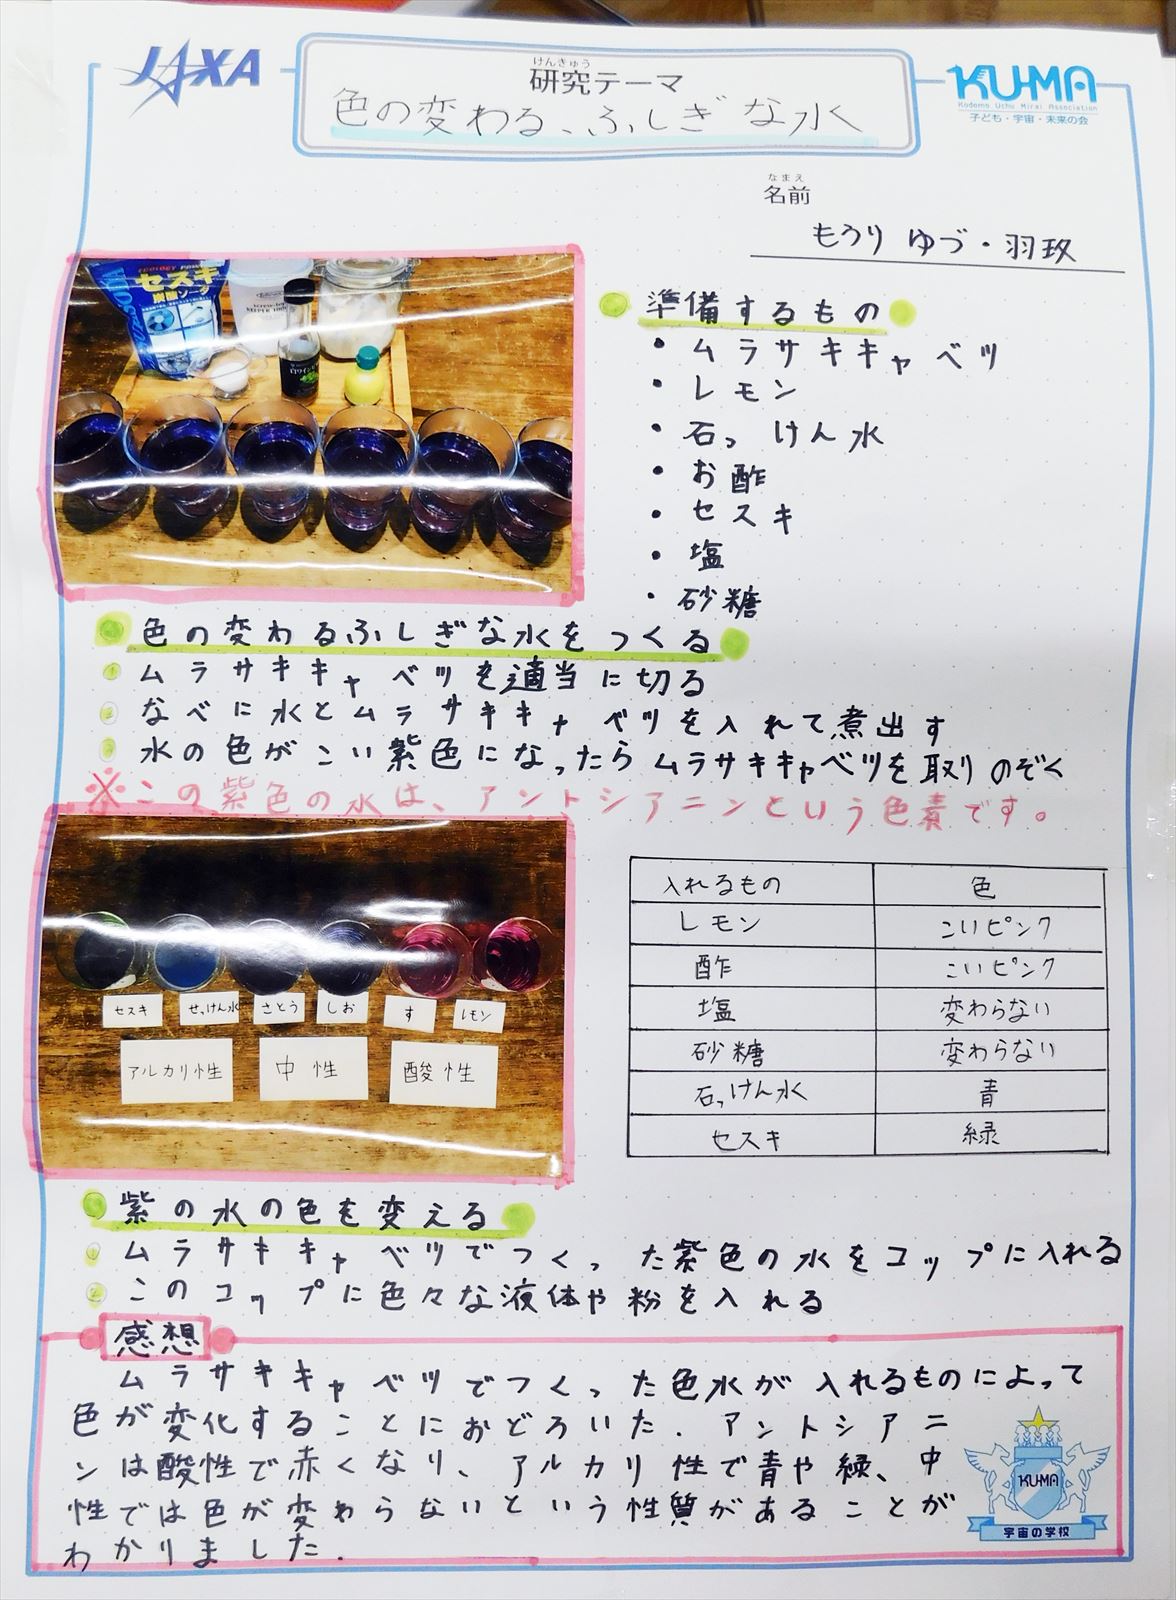 JAXA
けんきゅう
研究テーマ
色の変わる、ふしぎな水
KU-MA
Kodomo Uchu Mirai Association
子ども・宇宙・未来の会
なまえ
名前
もうり ゆづ・羽玖
セスキ
炭酸ソーダ
白ワイン
準備するもの
・ムラサキキャベツ
・レモン
・石っけん水
・お酢
・セスキ
・塩
・砂糖
色の変わるふしぎな水をつくる
① ムラサキキャベツを適当に切る
② なべに水とムラサキキャベツを入れて煮出す
③ 水の色がこい紫色になったらムラサキキャベツを取りのぞく
※この紫色の水は、アントシアニンという色素です。
セスキ せっけん水 さとう しお す レモン
アルカリ性 中性 酸性
入れるもの 色
レモン こいピンク
酢 こいピンク
塩 変わらない
砂糖 変わらない
石っけん水 青
セスキ 緑
紫の水の色を変える
① ムラサキキャベツでつくった紫色の水をコップに入れる
② このコップに色々な液体や粉を入れる
感想
ムラサキキャベツでつくった色水が入れるものによって
色が変化することにおどろいた。アントシアニ
ンは酸性で赤くなり、アルカリ性で青や緑、中
性では色が変わらないという性質があることが
わかりました。
KU-MA
宇宙の学校